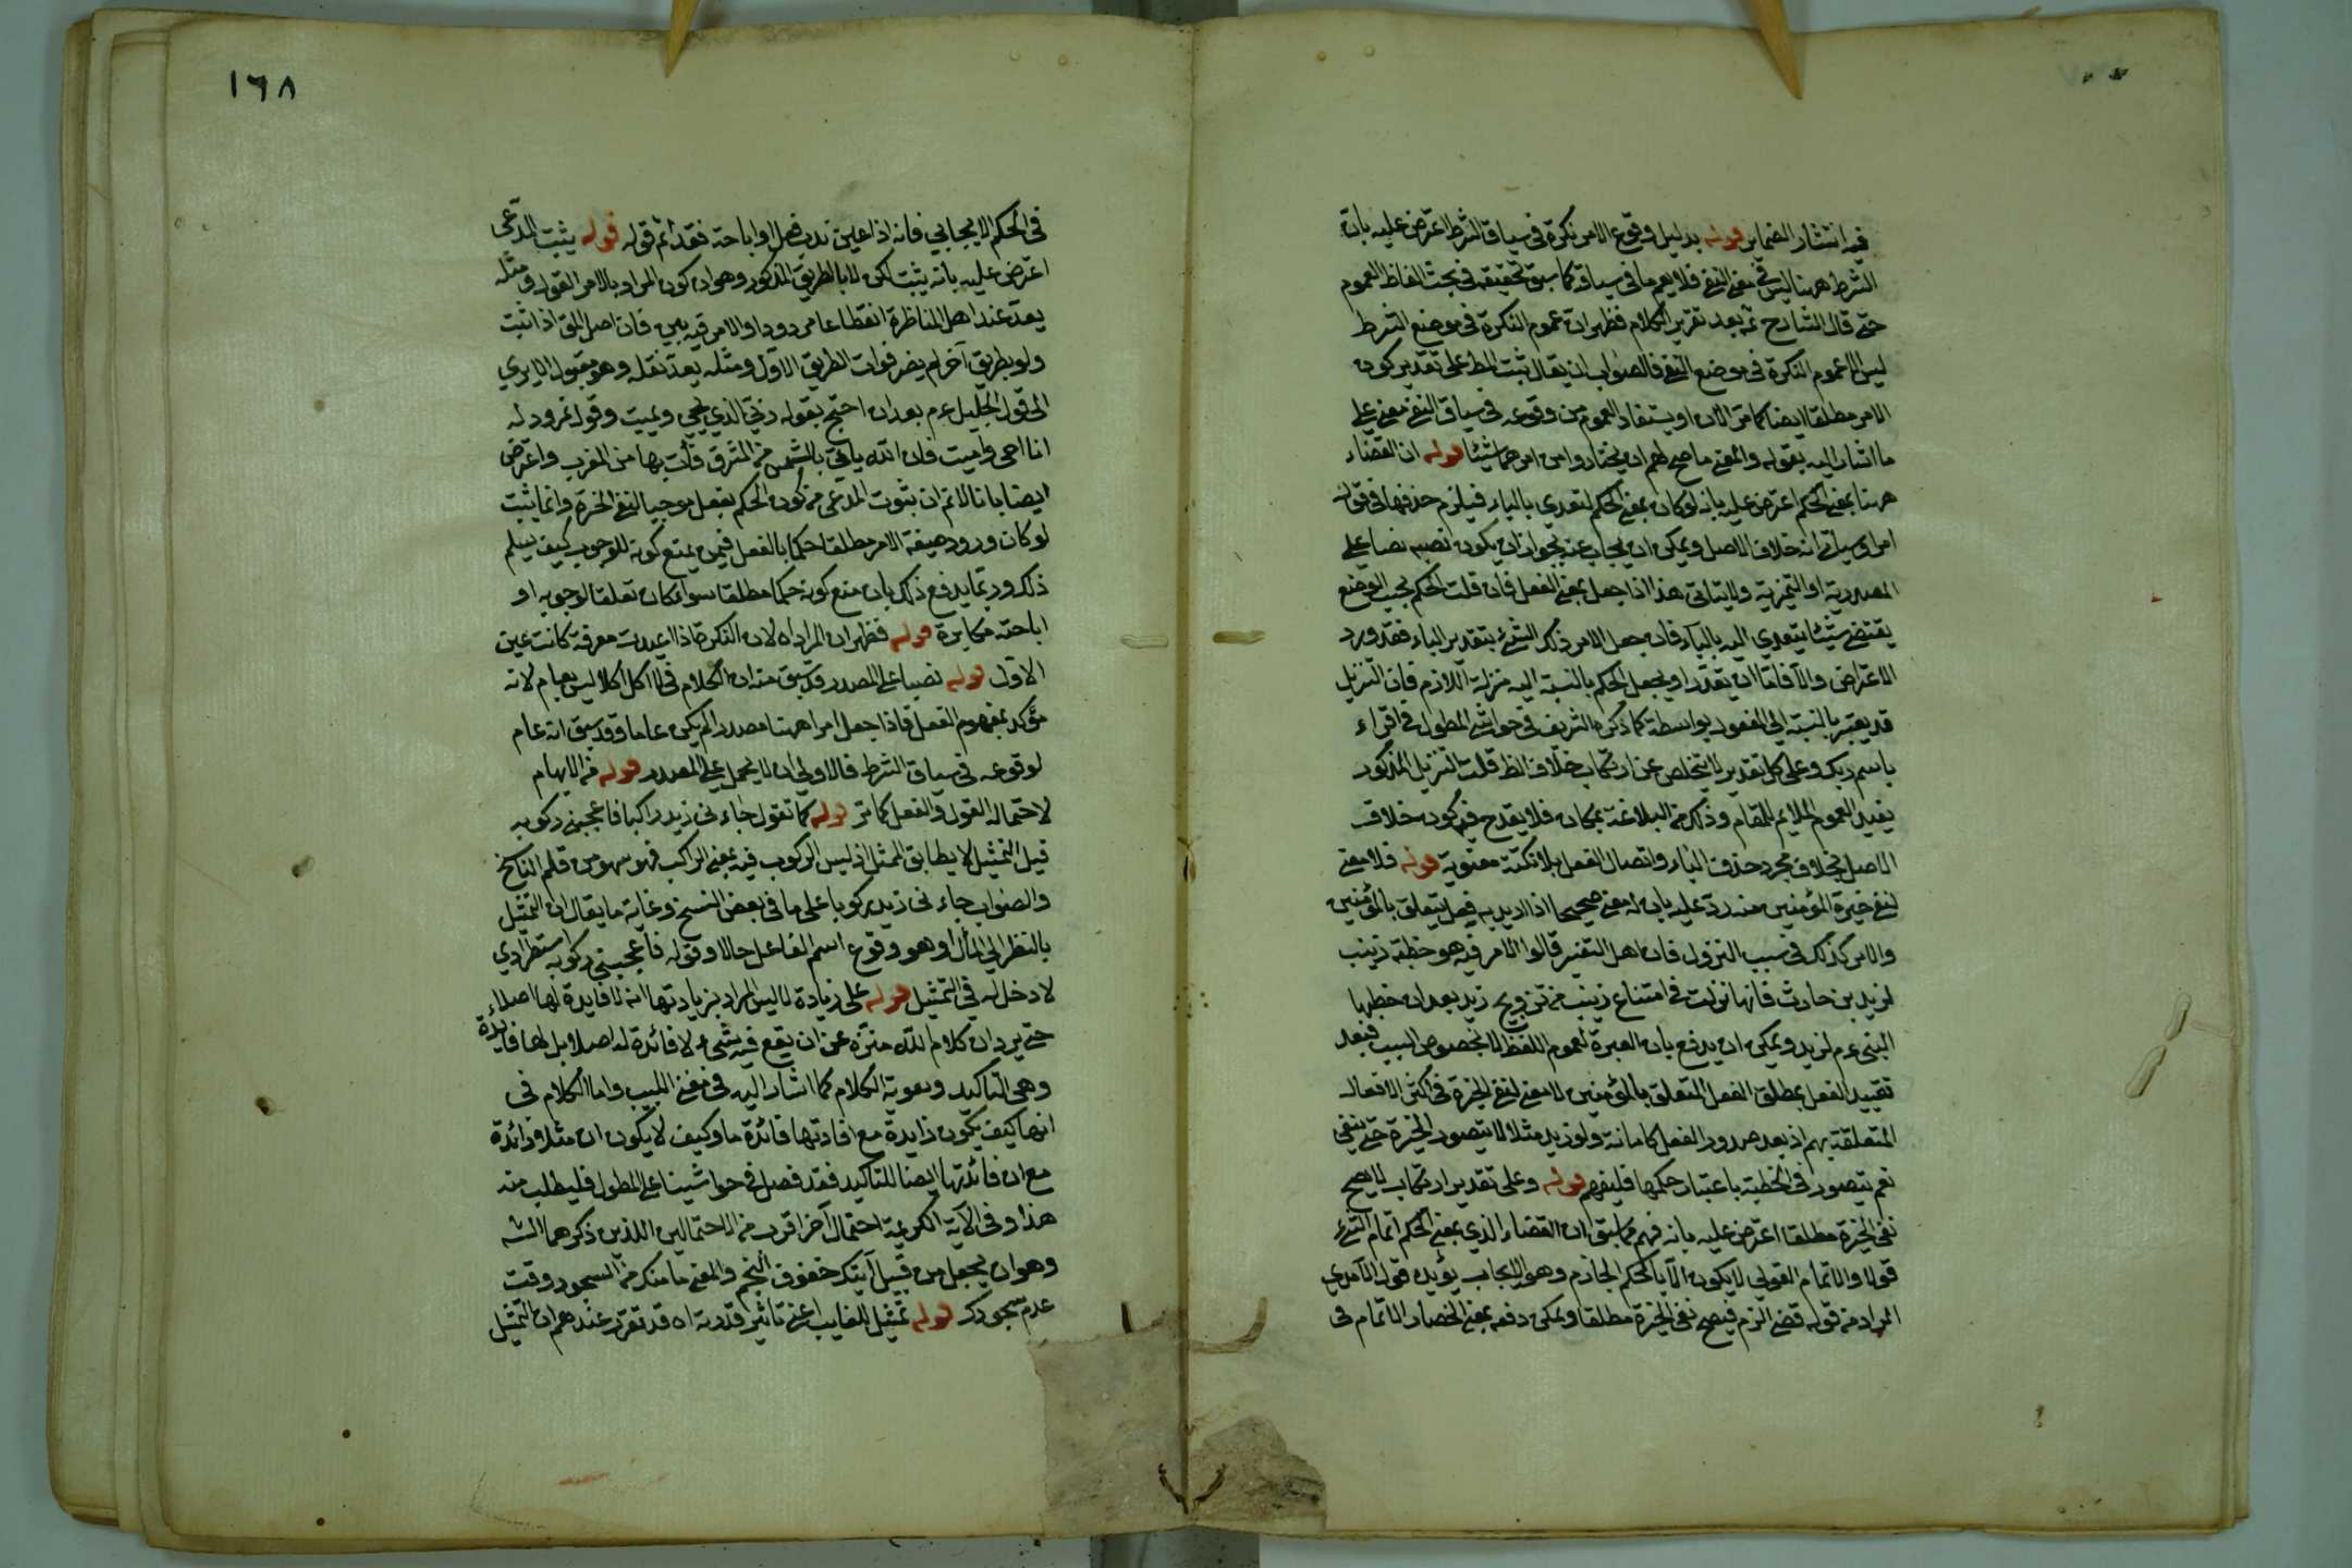 فيه انتشار الضماير قوله بدليل وقوع الامر نكرة في سياق الشرط اعترض عليه بان
الشرط ههنا ليس في معنى النفي فلا يعم ما في سياقه كما سبق تحقيقه في بحث الفاظ العموم
حتى قال الشارح ثمه بعد تقرير الكلام فظهر ان عموم النكرة في موضع الشرط
ليس الا عموم النكرة في موضع النفي فالصواب ان يقال ثبت المط على تقدير كون
الامر مطلقا ايضا كما مر الان او يستفاد العموم من وقوعه في سياق النفي معنى على
ما اشار اليه بقوله والمعنى ما صح لهم ان يختاروا من امرهما شيئا قوله ان القضاء
ههنا بمعنى الحكم اعترض عليه بانه لو كان بمعنى الحكم لتعدي بالباء فيلزم حذفها في قوله
امرا وسياتي انه خلاف الاصل ويمكن ان يجاب عنه بجواز ان يكون نصبه نصبا على
المصدرية او التميزية ولا يتاتى هذا اذا جعل بمعنى الفعل فان قلت الحكم بحسب الوضع
يقتضي شيئا يتعدي اليه بالباء فان جعل الامر ذلك الشيء بتقدير الباء فقد ورد
الاعتراض والا فاما ان يقدر او يجعل الحكم بالنسبة اليه منزلة اللازم فان التنزيل
قد يعتبر بالنسبة الى المفعول بواسطة كما ذكره الشريف في حواشي المطول في اقراء
باسم ربك وعلى كل تقدير لا يتخلص عن ارتكاب خلاف الظ قلت التنزيل المذكور
يفيد العموم الملايم للمقام وذلك من البلاغة بمكان فلا يقدح فيه كونه خلاف
الاصل بخلاف مجرد حذف الباء واتصال الفعل بلا نكتة معنوية قوله فلا معنى
لنفي خيرة المؤمنين منه رد عليه بان له معنى صحيحا اذا اريد به فعل يتعلق بالمؤمنين
والامر كذلك في سبب النزول فان اهل التفسير قالوا الامر فيه هو خطبة زينب
لزيد بن حارث فانها نزلت في امتناع زينب من تزويج زيد بعد ان خطبها
النبى عم لزيد ويمكن ان يدفع بان العبرة لعموم اللفظ لا لخصوص السبب فبعد
تقييد الفعل بمطلق الفعل المتعلق بالمؤمنين لا معنى لنفي الخيرة في اكثر الافعال
المتعلقة بهم اذ بعد صدور الفعل كامانة ولو زيد مثلا لا يتصور الخيرة حتى ينفي
نعم يتصور في الخطبة باعتبار حكمها فليفهم قوله وعلى تقدير ارتكاب لا يصح
نفي الخيرة مطلقا اعترض عليه بانه فهم مما سبق ان القضاء الذي بمعنى الحكم اتمام الشيء
قولا والاتمام القولي لا يكون الا بالحكم الجازم وهو الايجاب يؤيده قول الآمدي
المراد من قوله قضى الزم فيصح نفي الخيرة مطلقا ويمكن دفعه بمعنى انحصار الاتمام في
١٦٨
في الحكم الايجابي فانه اذا عين ندب فعل او اباحته فقد اتم قوله قوله يثبت المدعى
اعترض عليه بانه يثبت لكن لا بالطريق المذكور وهو ان كون المراد بالامر القول ومثله
يعد عند اهل المناظرة انقطاعا مردودا والامر فيه بين فان اصل المق اذا اثبت
ولو بطريق آخر لم يضر فوات الطريق الاول ومثله يعد نقله وهو مقبول الا يري
الى قول الجليل عم بعد ان احتج بقوله ربي الذي يحيي ويميت وقول نمرود له
انا احيي واميت فان الله ياتي بالشمس من المشرق فأت بها من المغرب واعترض
ايضا بانا لا نم ان بثبوت المدعى من كون الحكم بفعل موجبا لنفي الخيرة وانما يثبت
لو كان ورود صيغة الامر مطلقا حكما بالفعل فمن يمنع كونه للوجوب كيف يسلم
ذلك وربما يدفع ذلك بان منع كونه حكما مطلقا سواء كان تعلقا لوجوبه او
اباحته مكابرة قوله فظهر ان المراد اه لان النكرة اذا اعيدت معرفة كانت عين
الاول قوله نصبا على المصدر وقد سبق منه ان الكلام في لا اكل اكلا ليس بعام لانه
مؤكد بمفهوم الفعل فاذا جعل امرا ههنا مصدرا لم يكن عاما وقد سبق انه عام
لوقوعه في سياق الشرط فالاولى ان لا يحمل على المصدر قوله من الابهام
لاحتماله القول والفعل كما مر قوله كما تقول جاءني زيد راكبا فاعجبني ركوبه
قيل التمثيل لا يطابق الممثل اذ ليس الركوب فيه بمعنى الراكب فهو سهو من قلم الناسخ
والصواب جاءنى زيد ركوبا على ما في بعض النسخ وغاية ما يقال ان التمثيل
بالنظر الى المأل او هو وقوع اسم الفاعل حالا وقوله فأعجبني ركوبه استطرادي
لا دخل له في التمثيل قوله على زيادة لا ليس المراد بزيادتها انه لا فايدة لها اصلا
حتى يرد ان كلام الله منزه عن ان يقع فيه شيء لا فائدة له اصلا بل لها فايدة
وهي التاكيد وتقوية الكلام كما اشار اليه في مغني اللبيب واما الكلام في
انها كيف يكون زايدة مع افادتها فائدة ما وكيف لا يكون ان مثلا زائدة
مع ان فائدتها ايضا للتاكيد فقد فصل في حواشينا على المطول فليطلب منه
هذا وفي الآية الكريمة احتمال آخر اقرب من الاحتمالين اللذين ذكرهما الشه
وهو ان يجعل من قبيل آتيك خفوق النجم والمعنى ما منعك من السجود وقت
عدم سجودك قوله تمثيل للغايب اعني تاثير قدرته اه قد تقرر عندهم ان التمثيل